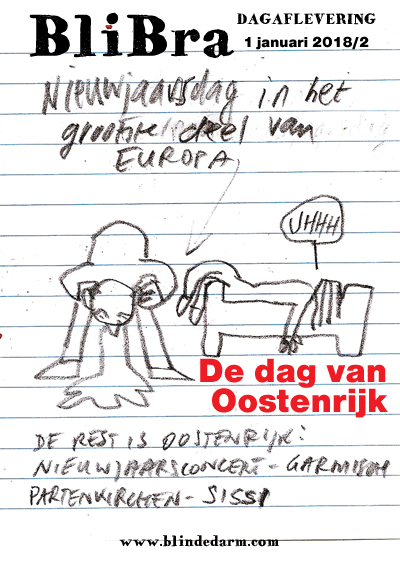 BliBra
DAGAFLEVERING
1 januari 2018/2
Nieuwjaarsdag in het
grootste deel van
EUROPA
UHHH
De dag van
Oostenrijk
DE REST IS OOSTENRIJK:
NIEUWJAARSCONCERT - GARMISCH
PARTENKIRCHEN - SISSI
www.blindedarm.com